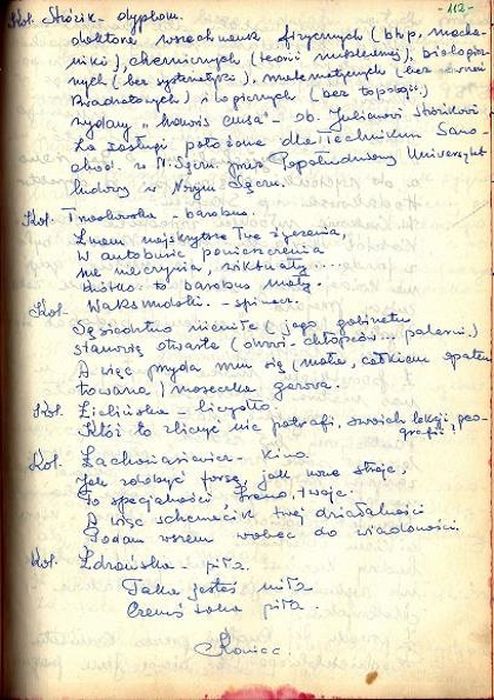 - 112 -
Kol. Stózik - dyplom.
doktora wszechnauk fizycznych (bhp, mecha-
niki), chemicznych (teorii nuklearnej), biologicz-
nych (bez systematyki), matematycznych (bez równań
kwadratowych) i logicznych (bez topologii)
wydany „honoris causa" - ob. Julianowi Stózikowi
za zasługi położone dla Technikum Samo-
chod. w N. Sączu przez Popołudniowy Uniwersytet
ludowy w Nowym Sączu.
Kol. - barobus.
Znam najskrytsze Twe życzenia,
W autobusie pomieszczenia
nie
to barobus mały.
Kol. Waksmundzki. - spinacz.
Sąsiedztwo niemiłe (jego gabinetu
stanowią otwarte (drzwi chłopców... palarni.)
A więc przyda mu się (mała, całkiem opaten-
towana) maseczka gazowa.
Kol. Zielińska - liczydło
Któż to zliczyć nie potrafi, swoich lekcji geo-
grafii,
Kol. Zachariasiewicz - Kino.
Jak zdobyć forsę, jak nowe stroje,
To specjalności Ireno, twoje.
A więc schemacik twej działalności
Podam wszem wobec do wiadomości.
Kol. Zdrońska - piła.
Taka jesteś miła
Czemuś taka piła.
Koniec.